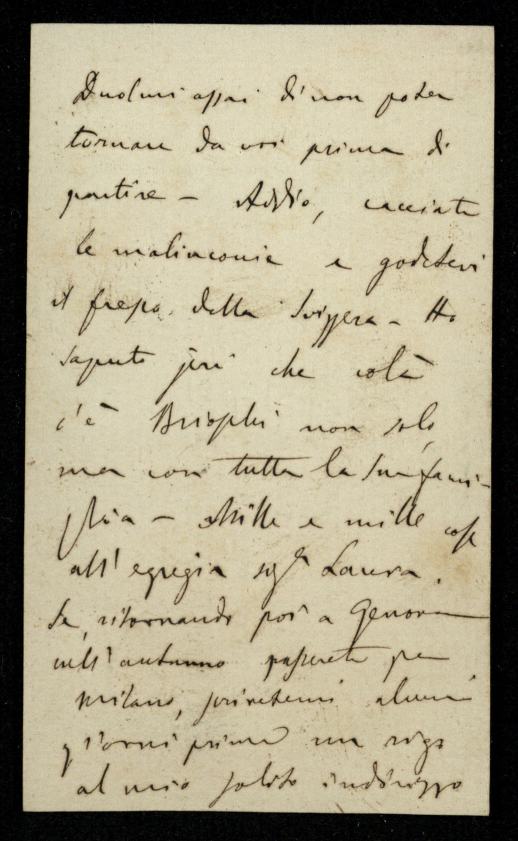 Duolmi assai di non poter
tornare da voi prima di
partire – Addio, cacciate
le malinconie e godetevi
il fresco della Svizzera – Ho
saputo jeri che colà
c'è non solo,
ma con tutta la sua fami-
glia – Mille e mille cose
all'egregia sigra Laura.
Se, ritornando poi a Genova
nell'autunno passerete per
Milano, scrivetemi alcuni
giorni prima un rigo
al mio solito indirizzo